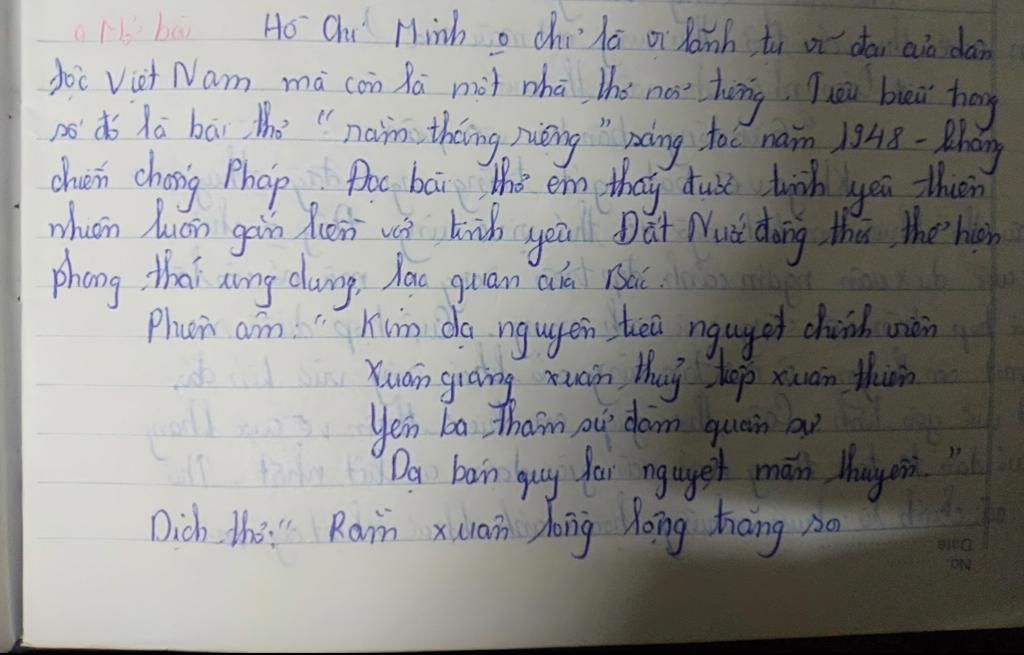 a Mở bài Hồ Chí Minh o chỉ là vị lãnh tụ vĩ đại của dân
tộc Việt Nam mà còn là một nhà thơ nổi tiếng. Tiêu biểu trong
số đó là bài thơ "rằm tháng riêng" sáng tác năm 1948 - kháng
chiến chống Pháp Đọc bài thơ em thấy được tình yêu thiên
nhiên luôn gắn liền với tình yêu Đất Nước đồng thời thể hiện
phong thái ung dung, lạc quan của Bác.
Phiên âm: "Kim dạ nguyên tiêu nguyệt chính viên
Xuân giang xuân thuỷ tiếp xuân thiên
Yên ba thâm sứ đàm quân sự
Dạ bán quy lai nguyệt mãn thuyền."
Dịch thơ: "Rằm xuân lồng lộng trăng soi
No.
Date